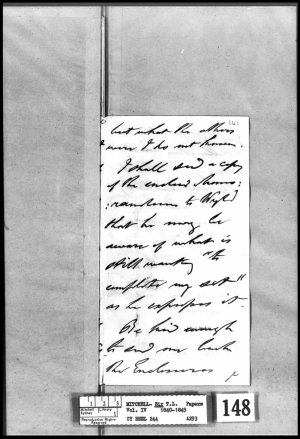 161
but what the others
were I do not know.
I shall send a copy
of the enclosed Memo:
:randum to
that he may be
aware of what is
still wanting "to
complete my set"
as he expresses it.
Be kind enough
to send me back
the Enclosures
MITCHELL- Sir T.L. Papers
Vol. IV 1840-1843
CY REEL 244 A293
148
Mitchell
Library
Sydney
Reproduction Rights
Reserved